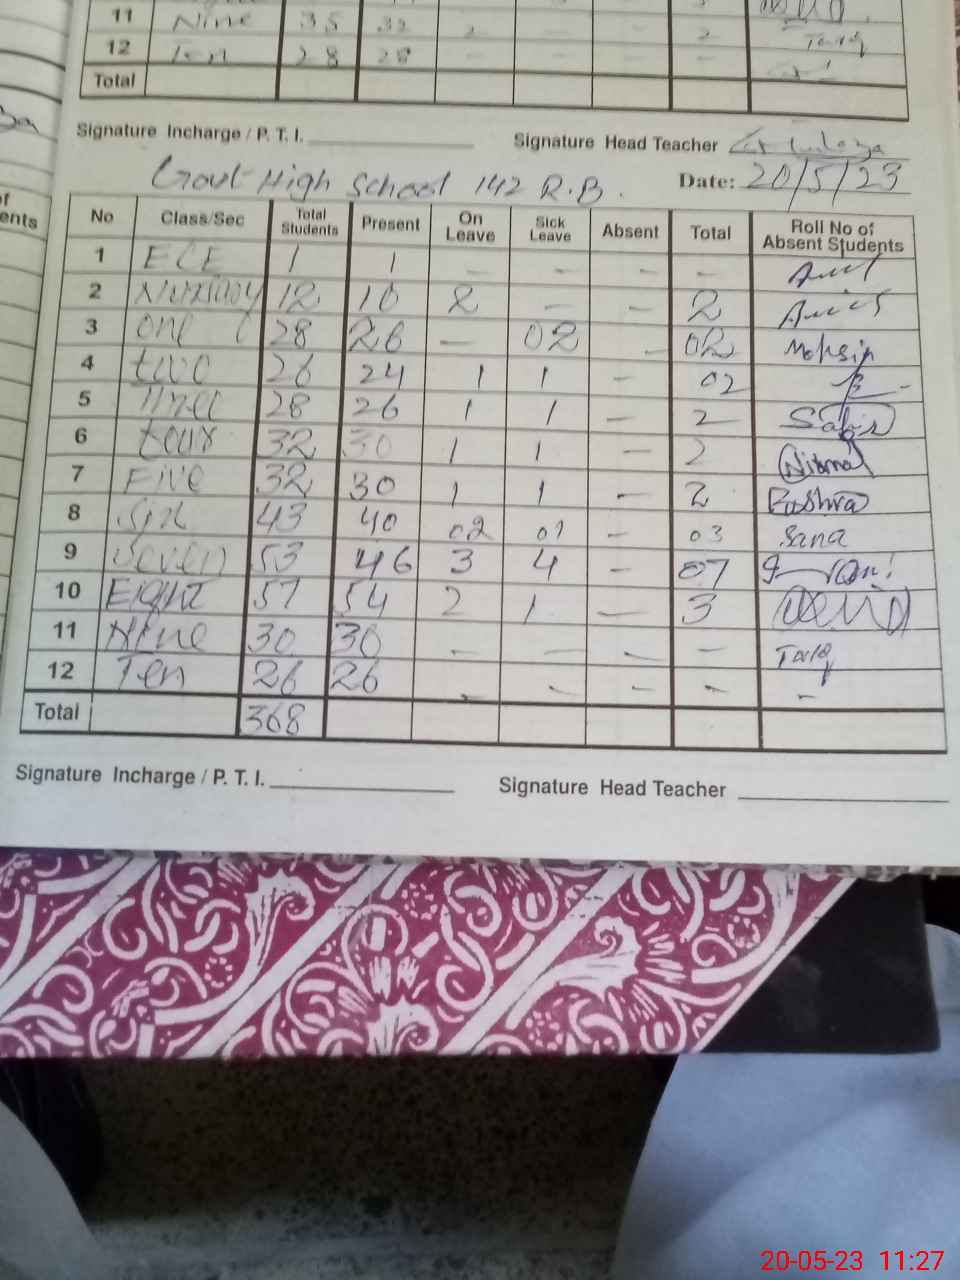 11 Nine 35 33 2 — — 2
12 Ten 28 28 — — — — Tariq
Total
Signature Incharge / P. T. I.
Signature Head Teacher
Govt High School 142 R.B.
Date: 20/5/23
No Class/Sec Total Students Present On Leave Sick Leave Absent Total Roll No of Absent Students
1 ECE 1 1 — — — —
2 Nursary 12 10 2 — — 2
3 One 28 26 — 02 — 02 Mohsin
4 two 26 24 1 1 — 02
5 Three 28 26 1 1 — 2
6 four 32 30 1 1 — 2 Nirmal
7 Five 32 30 1 1 — 2 Bushra
8 Six 43 40 02 01 — 03 Sana
9 Seven 53 46 3 4 — 07
10 Eight 57 54 2 1 — 3
11 Nine 30 30 — — — — Tariq
12 Ten 26 26 — — — — —
Total 368
Signature Incharge / P. T. I.
Signature Head Teacher
20-05-23 11:27